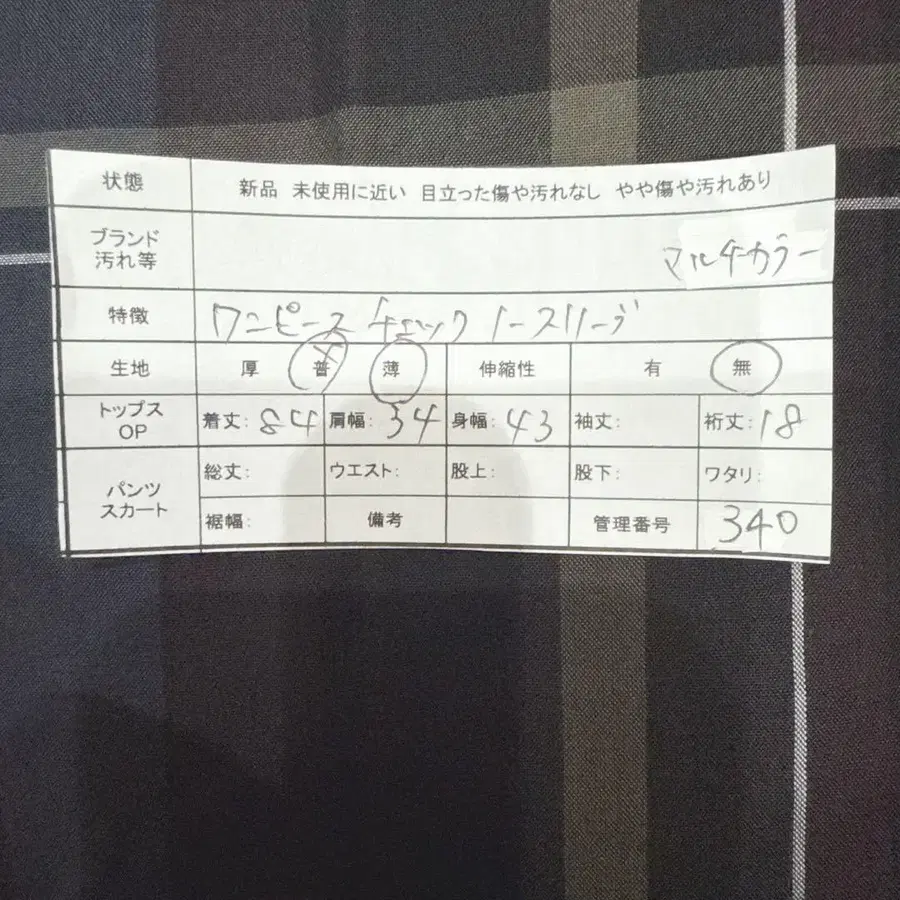 状態 新品 未使用に近い 目立った傷や汚れなし やや傷や汚れあり
ブランド
汚れ等 マルチカラー
特徴 ワンピース チェック ノースリーブ
生地 厚 普 薄 伸縮性 有 無
トップス
OP 着丈: 84 肩幅: 34 身幅: 43 袖丈: 裄丈: 18
パンツ
スカート 総丈: ウエスト: 股上: 股下: ワタリ:
裾幅: 備考 管理番号 340